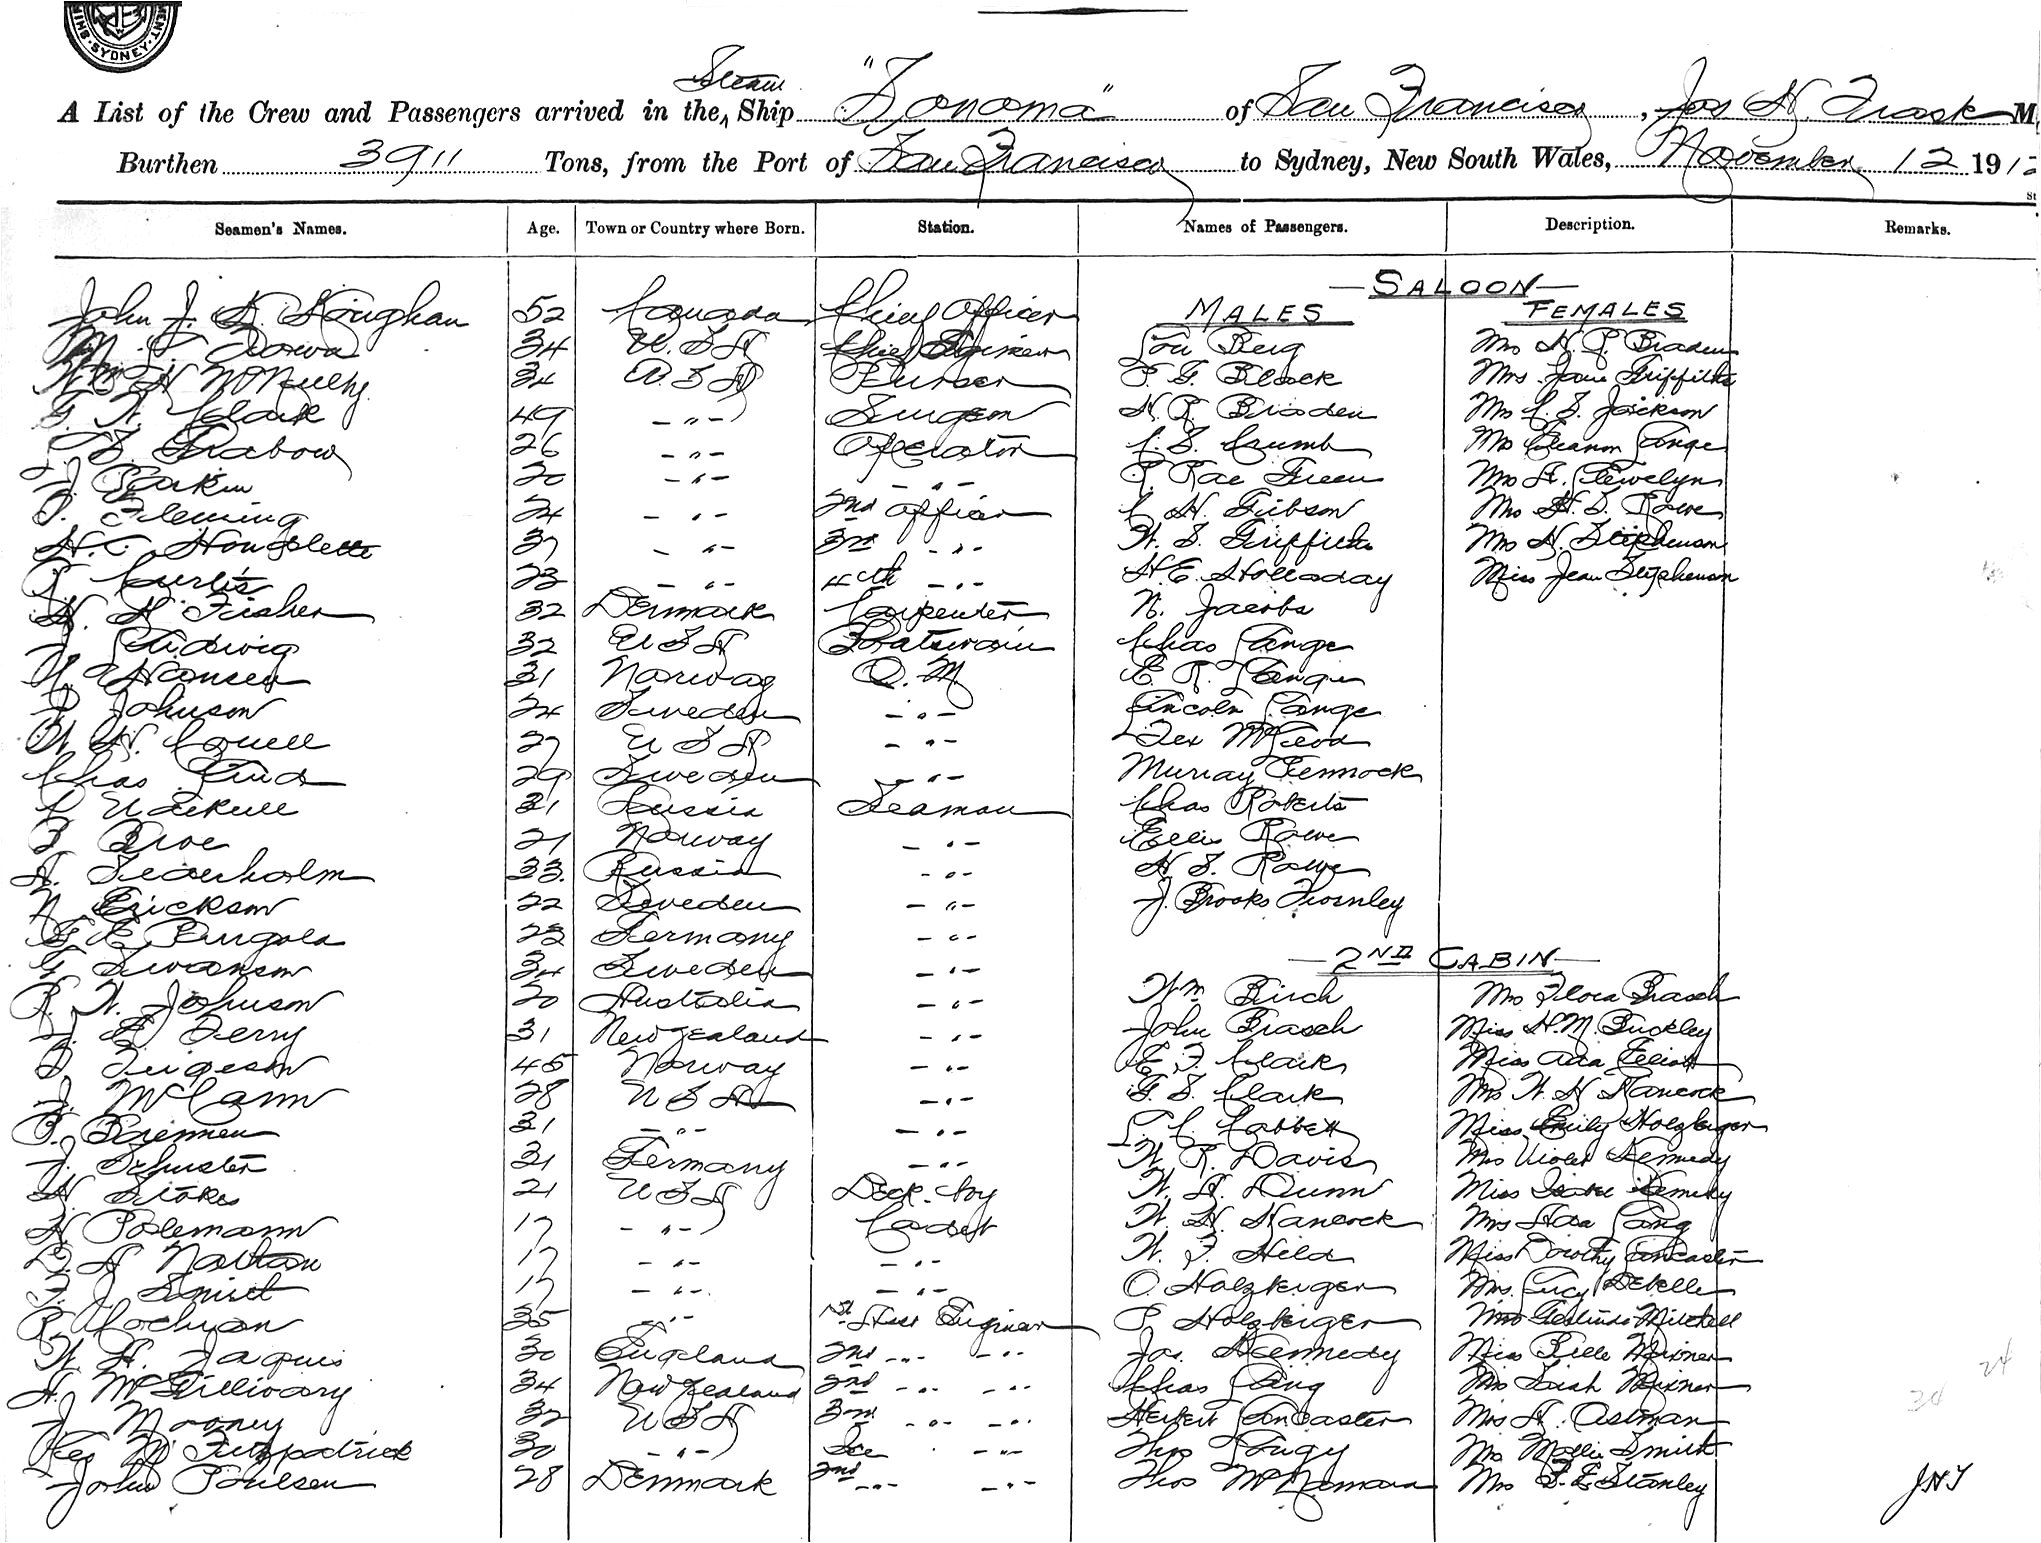 SYDNEY
Steam
A List of the Crew and Passengers arrived in the Ship "Sonoma" of San Francisco, Jos H. Trask M
Burthen 3911 Tons, from the Port of San Francisco to Sydney, New South Wales, November 12 191
Seamen's Names. Age. Town or Country where Born. Station. Names of Passengers. Description. Remarks.
—SALOON—
John J. K. Houghan 52 Canada Chief Officer MALES FEMALES
34 U.S.A Chief Engineer Lou Berg Mrs H. P. Braden
McNulty 34 U.S.A Purser T. G. Black Mrs Jane Griffiths
G. W. Clark 49 — " — Surgeon H. P. Braden Mrs C. S. Jackson
S. Grabow 26 — " — Operator C. S. Crumb Mrs Eleanor Lange
J. Larkin 20 — " — — " — P. Rae Green Mrs A. Llewelyn
T. Fleming 24 — " — 2nd Officer C. H. Gibson Mrs H. S. Rowe
H. C. Houdlette 37 — " — 3rd — " — W. S. Griffiths Mrs N. Stephenson
P. Curtis 23 — " — 4th — " — H. E. Holladay Miss Jean Stephenson
H. H. Fisher 32 Denmark Carpenter N. Jacobs
J. Ludwig 32 U S A Boatswain Chas Lange
Hansen 31 Norway Q. M. E. R. Lange
Johnson 24 Sweden — " — Lincoln Lange
W. H. Couell 27 U S A — " — Tex McLeod
Chas. Lind 29 Sweden — " — Murray Pennock
C. Uexkull 31 Russia Seaman Chas Roberts
B. Broe 21 Norway — " — Ellis Rowe
A. Sederholm 33. Russia — " — H. S. Rowe
N. Erickson 22 Sweden — " — J. Brooks Thornley
G. E. Pergola 23 Germany — " —
G. Swanson 34 Sweden — " — —2ND CABIN—
R. W. Johnson 20 Australia — " — Wm Birch Mrs Flora Brasch
J. E. Terry 31 New Zealand — " — John Brasch Miss H. M. Buckley
T. Turgeson 45 Norway — " — E. F. Clark Miss Ada Elliott
J. McCann 28 U S A — " — G. S. Clark Mrs W. H Hancock
P. Brennen 31 — " — — " — P. C. Corbett Miss Emily Holzberger
J. Schuster 31 Germany — " — W. R. Davis Mrs Violet Kennedy
H. Stokes 21 U S A Deck-boy W. H. Dunn Miss Kennedy
H. Polemann 17 — " — Cadet W. H. Hancock Mrs Ada Lang
D. H Nathan 17 — " — — " — W. F. Hild Miss Dorothy Lancaster
F. J. Smith 17 — " — — " — O. Holzberger Mrs. Lucy DeBelle
R. Cochran 35 — " — 1st Asst Engineer P. Holzberger Mrs Gertrude Mitchell
W. H. Jaquis 30 England 2nd — " — — " — Jos. Kennedy Miss Belle Mixner
A. McGillivary 34 New Zealand 3rd — " — — " — Chas Lang Mrs Leah Mixner
J. Mooney 32 U S A 3rd — " — — " — Herbert Lancaster Mrs A. Ostman
Geo M. Fitzpatrick 30 — " — Ice — " — Thos Lugy Mrs Mollie Smith
John Poulsen 28 Denmark 2nd — " — — " — Thos McNamara Mrs F. E. Stanley
24
34
JHT